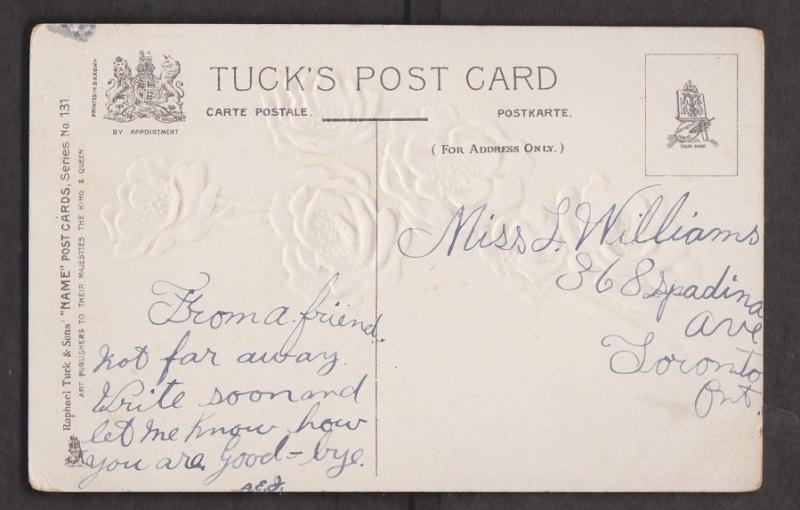 TUCK'S POST CARD
CARTE POSTALE.
POSTKARTE.
(FOR ADDRESS ONLY.)
BY APPOINTMENT
PRINTED IN SAXONY
Raphael Tuck & Sons' "NAME" POST CARDS, Series No. 131.
ART PUBLISHERS TO THEIR MAJESTIES THE KING & QUEEN
TRADE MARK
From a friend
not far away.
Write soon and
let me know how
you are. Good-bye.
A.E.J.
Miss L. Williams
368 Spadina
Ave
Toronto
Ont.